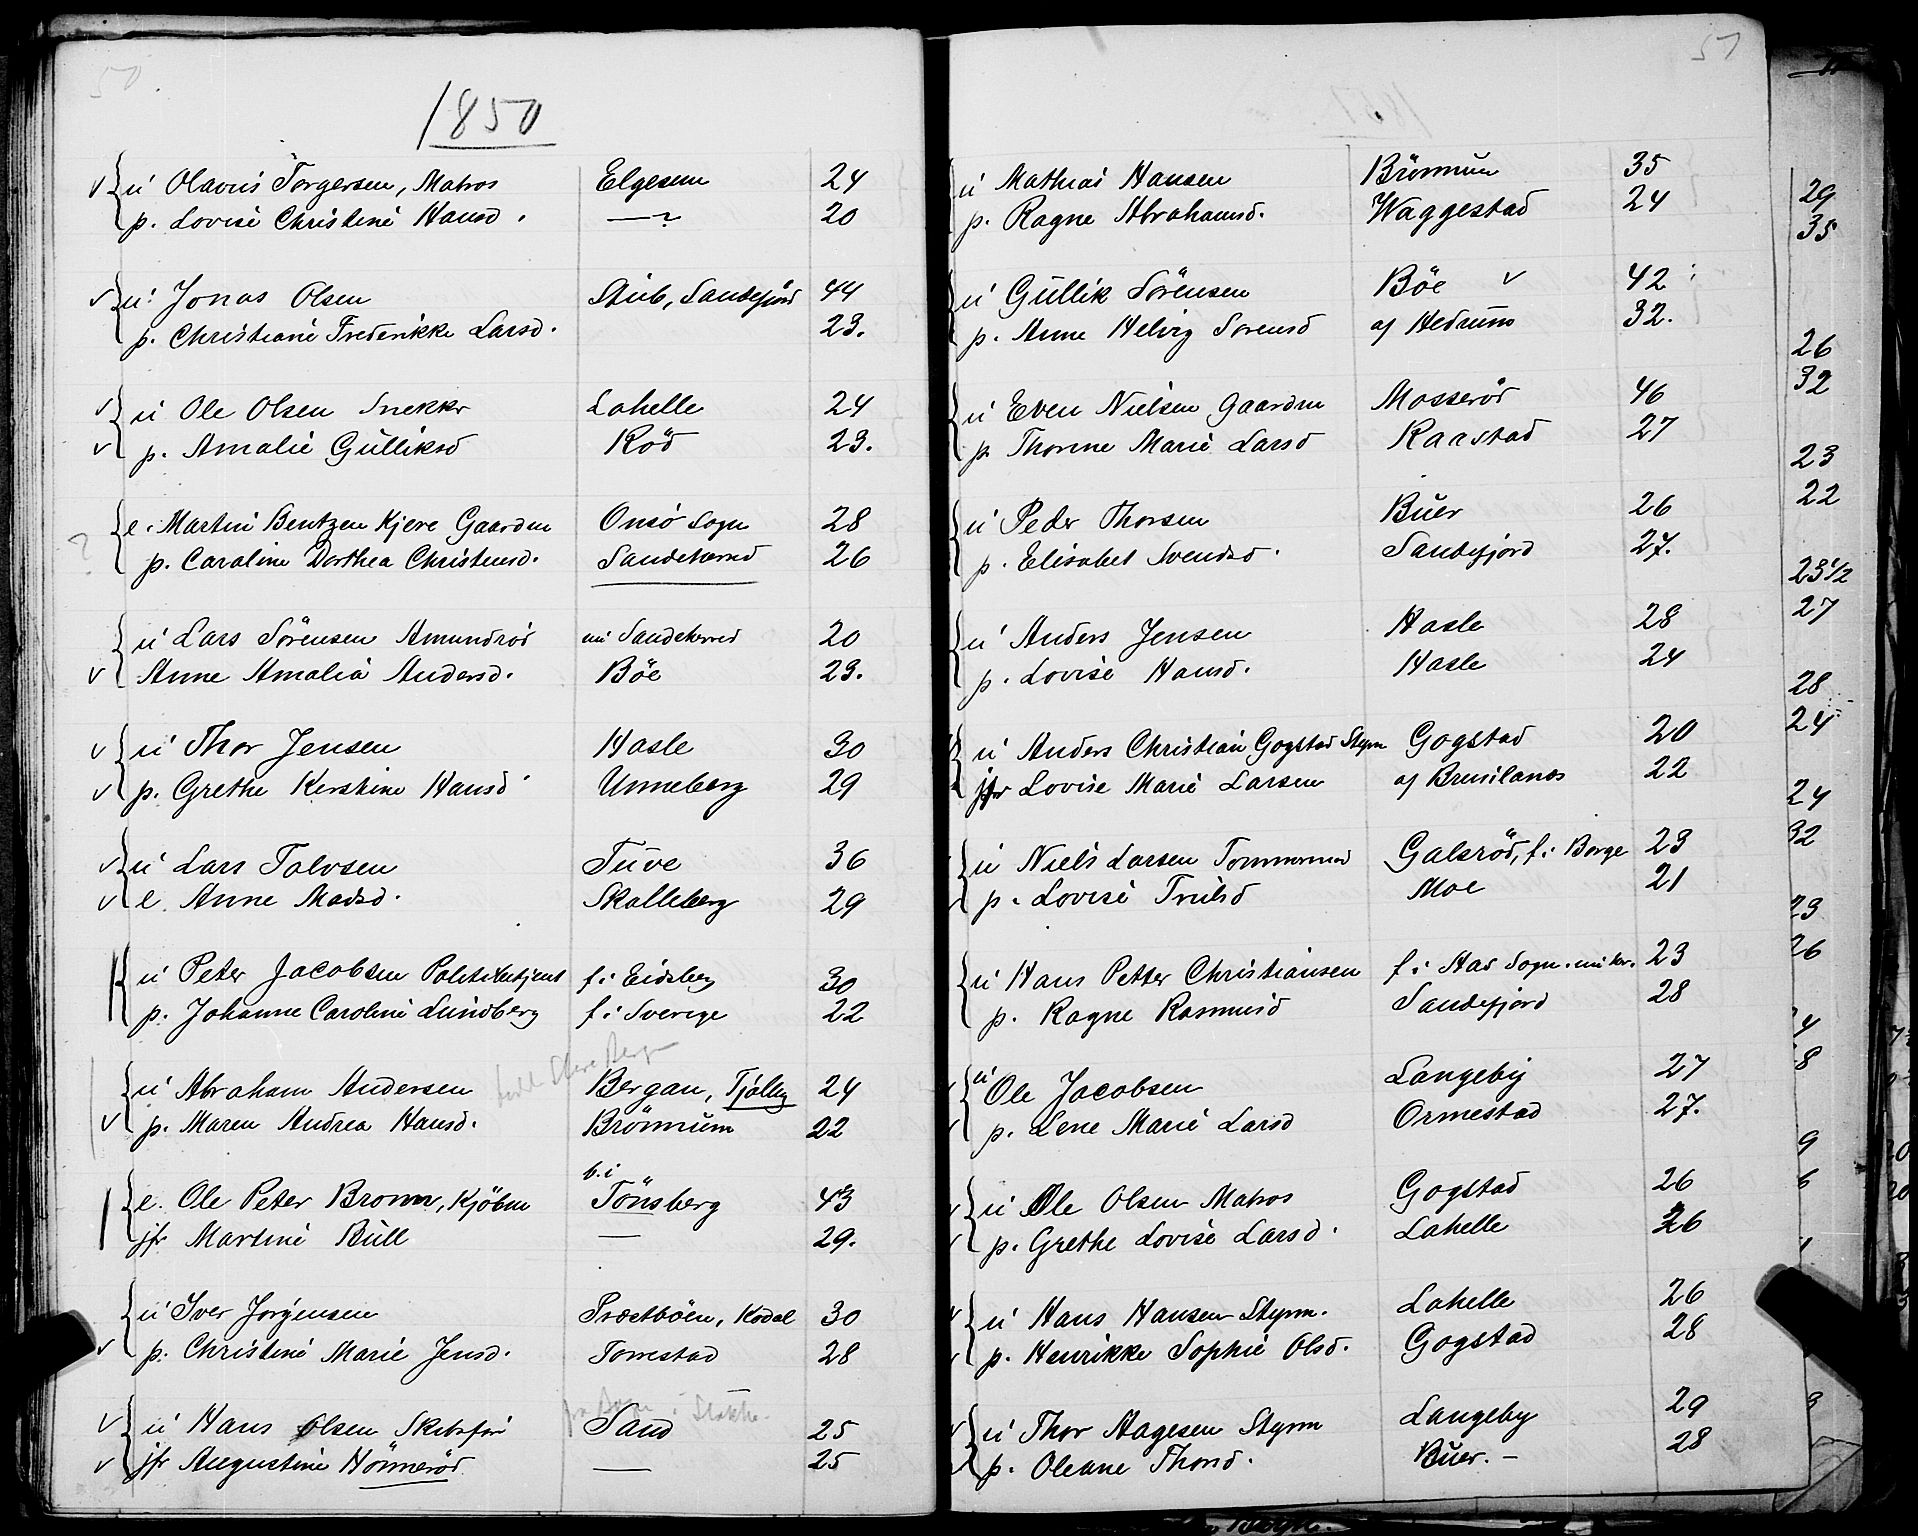 50
1850
u Olavus Torgersen, Matros Elgesem 24
p. Lovise Christine Hansd. —"— 20
u. Jonas Olsen Stub, Sandefjord 44
p. Christiane Frederikke Larsd. 23.
u Ole Olsen Snekkr Lahelle 24
p. Amalie Gulliksd Röd 23.
e. Martin Bentzen Kjere Gaardm Onsö Sogn 28
? p. Caroline Dorthea Christensd. Sandeherred 26
u Lars Sörensen Amundröd nu Sandeherred 20
Anne Amalia Andersd. Böe 23.
u Thor Jensen Hasle 30
p. Grethe Kirstine Hansd Unneberg 29
u Lars Talvsen Tuve 36
e. Anne Madsd. Skalleberg 29
u Peter Jacobsen Politibetjent f. i Eidsberg 30
p. Johanne Caroline Lundberg f. i Sverige 22
u Abraham Andersen Bergan, Tjölling 24
p. Maren Andrea Hansd. Brönnum 22
e. Ole Peter Bronn, Kjöbm b. i Tönsberg 43
jfr Martine Bull — 29.
u Iver Jörgensen Præstböen, Kodal 30
p. Christine Marie Jensd. Torrestad 28
u Hans Olsen Skibsför Sand 25
jfr Augustine Hönneröd — 25
51
1851
u Mathias Hansen Brönnum 35
p. Ragne Abrahamsd. Waggestad 24
u Gullik Sörensen Böe 42
p. Anne Helvig Sorensd af Hedrum 32.
u Even Nielsen Gaardm Mosseröd 46
p. Thorine Marie Larsd Raastad 27
u Peder Thorsen Buer 26
p. Elisabet Svendsd. Sandefjord 27.
u Anders Jensen Hasle 28
p. Lovise Hansd. Hasle 24
u Anders Christian Gogstad Styrm Gogstad 20
jfr Lovise Marie Larsen af Brunlanæs 22
u Niels Larsen Tommermnd Galsröd, f. i Borge 23
p. Lovise Trulsd Moe 21
u Hans Petter Christiansen f. i Has Sogn. nu her. 23
p. Ragne Rasmusd Sandefjord 28
u Ole Jacobsen Langeby 27
p. Lene Marie Larsd Ormestad 27.
u Ole Olsen Matros Gogstad 26
p. Grethe Lovise Larsd. Lahelle 26
u Hans Hansen Styrm. Lahelle 26
p. Henrikke Sophie Olsd. Gogstad 28
u Thor Hagesen Styrm Langeby 29
p. Oleane Thorsd. Buer. – 28
29
35
26
32
23
22
23 1/2
27
28
24
24
32
23
26
4
8
9
6
1